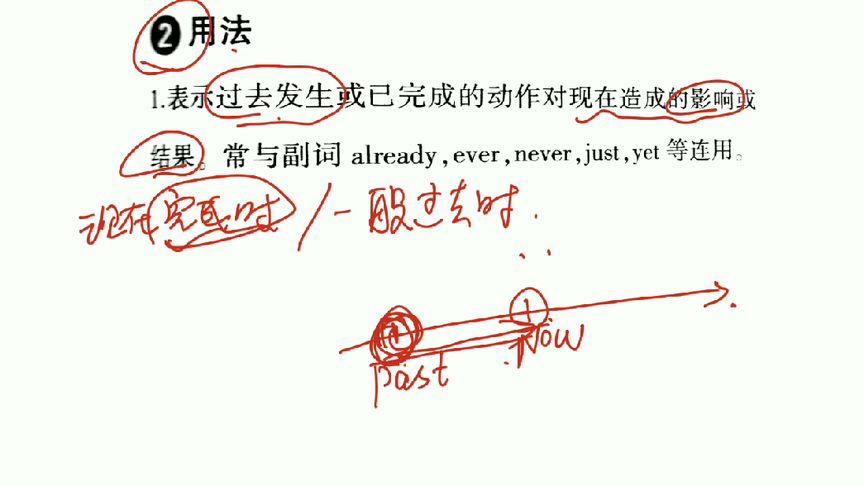 2 用法
1.表示过去发生或已完成的动作对现在造成的影响或
结果。常与副词 already,ever,never,just,yet 等连用。
现在完成时/一般过去时.
Now
past